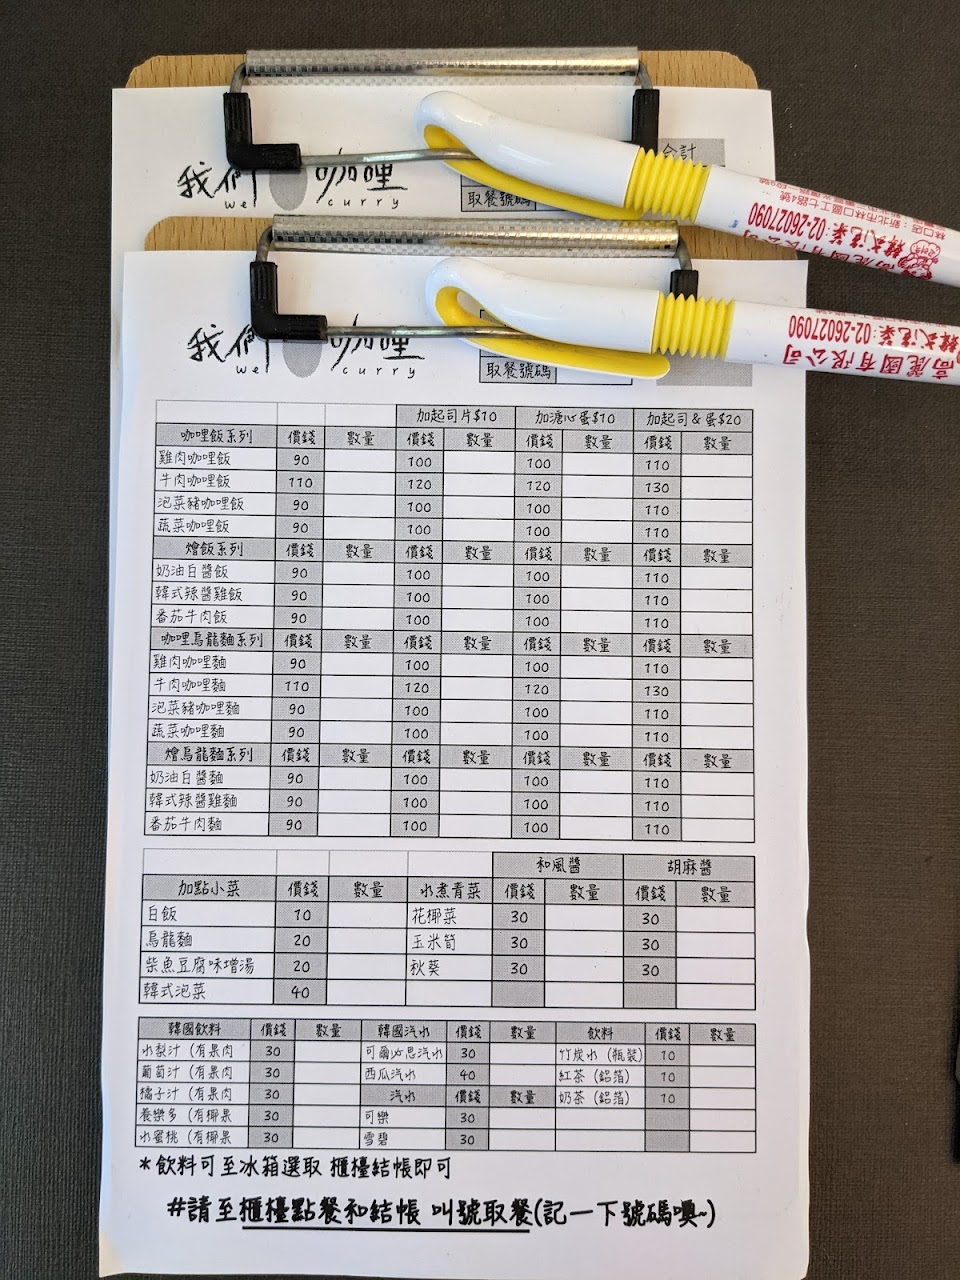 我們 咖哩
we curry
合計
取餐號碼
林口店：新北市林口區工七路4號
韓式泡菜：02-26027090
我們 咖哩
we curry
取餐號碼
韓式泡菜：02-26027090
高麗國有限公司
加起司片$10 加溏心蛋$10 加起司&蛋$20
咖哩飯系列 價錢 數量 價錢 數量 價錢 數量 價錢 數量
雞肉咖哩飯 90 100 100 110
牛肉咖哩飯 110 120 120 130
泡菜豬咖哩飯 90 100 100 110
蔬菜咖哩飯 90 100 100 110
燴飯系列 價錢 數量 價錢 數量 價錢 數量 價錢 數量
奶油白醬飯 90 100 100 110
韓式辣醬雞飯 90 100 100 110
番茄牛肉飯 90 100 100 110
咖哩烏龍麵系列 價錢 數量 價錢 數量 價錢 數量 價錢 數量
雞肉咖哩麵 90 100 100 110
牛肉咖哩麵 110 120 120 130
泡菜豬咖哩麵 90 100 100 110
蔬菜咖哩麵 90 100 100 110
燴烏龍麵系列 價錢 數量 價錢 數量 價錢 數量 價錢 數量
奶油白醬麵 90 100 100 110
韓式辣醬雞麵 90 100 100 110
番茄牛肉麵 90 100 100 110
和風醬 胡麻醬
加點小菜 價錢 數量 水煮青菜 價錢 數量 價錢 數量
白飯 10 花椰菜 30 30
烏龍麵 20 玉米筍 30 30
柴魚豆腐味增湯 20 秋葵 30 30
韓式泡菜 40
韓國飲料 價錢 數量 韓國汽水 價錢 數量 飲料 價錢 數量
水梨汁（有果肉 30 可爾必思汽水 30 竹炭水（瓶裝） 10
葡萄汁（有果肉 30 西瓜汽水 40 紅茶（鋁箔） 10
橘子汁（有果肉 30 汽水 價錢 數量 奶茶（鋁箔） 10
養樂多（有椰果 30 可樂 30
水蜜桃（有椰果 30 雪碧 30
*飲料可至冰箱選取 櫃檯結帳即可
#請至櫃檯點餐和結帳 叫號取餐(記一下號碼噢~)